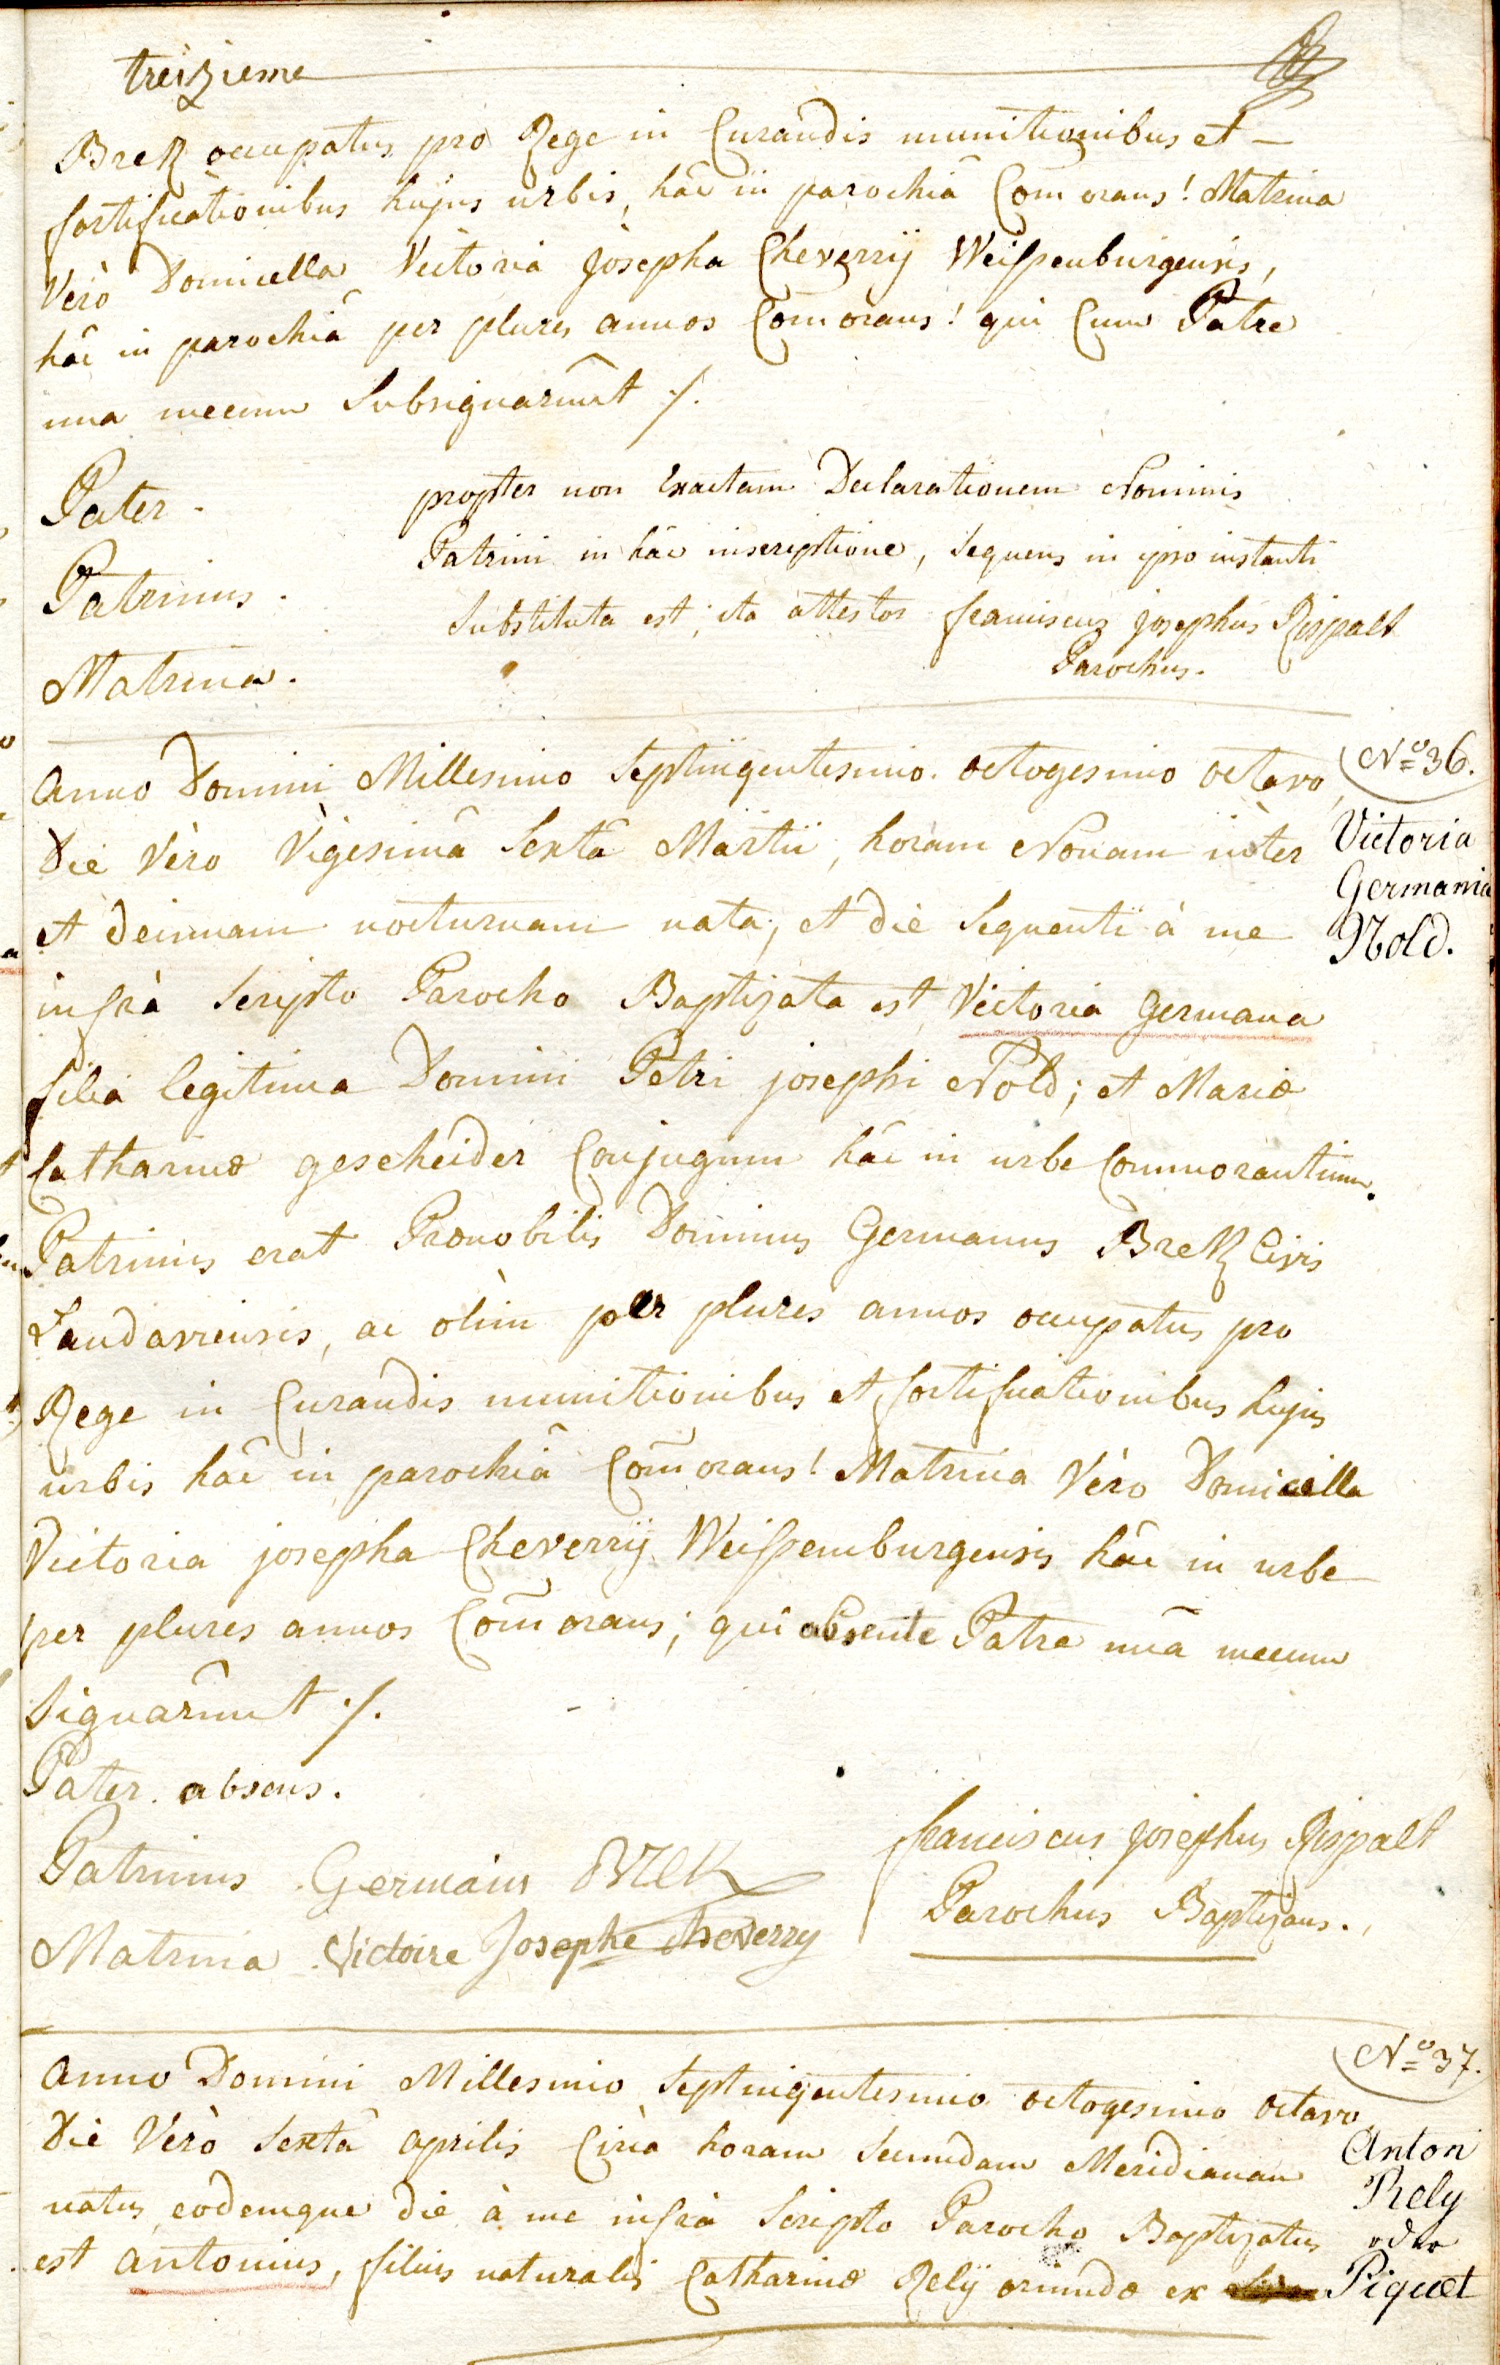 treizieme
Bretz occupatus pro Rege in Curandis munitionibus et
fortificationibus hujus urbis, hâc in parochiâ Com̃orans! Matrina
Verò Domicella Victoria josepha Cheverrÿ Weissenburgensis,
hâc in parochiâ per plures annos Com̃orans! qui Cum Patre
una mecum Subsignarûnt ./.
Pater.
Patrinus.
Matrina.
propter non Exactam Declarationem Nominis
Patrini in hâc inscriptione, Sequens in ipso instanti
Substituta est; ita attestor franciscus josephus Rispalt
Parochus.
Nº 36.
Victoria
Germania
Nold.
Anno Domini Millesimo Septingentesimo octogesimo octavo,
Die Vèro Vigesimâ Sextâ Martii, horam Nonam intèr
et decimam nocturnam nata, et die Sequenti à me
infrà Scripto Parocho Baptizata est Victoria Germana
filia legitima Domini Petri josephi Nold; et Mariæ
Catharinæ gescheider Conjugum hâc in urbe Commorantium.
Patrinus erat Prænobilis Dominus Germanus Bretz Civis
Landaviensis, ac olim per plures annos occupatus pro
Rege in Curandis munitionibus et fortificationibus hujus
urbis hâc in parochiâ Com̃orans! Matrina Vèro Domicella
Victoria josepha Cheverrÿ Weissemburgensis hâc in urbe
per plures annos Com̃orans; qui absente Patre unâ mecum
Signarûnt ./.
Pater absens.
Patrinus Germain Bretz
Matrina Victoire Josephe Cheverry
franciscus josephus Rispalt
Parochus Baptizans.
Nº 37.
Anton
Rely
oder
Piquet
Anno Domini Millesimo Septingentesimo octogesimo octavo
Die Verò Sextâ aprilis Circà horam Secundam Meridianam
natus, eodemque die à me infrà Scripto Parocho Baptizatus
est antonius, filius naturalis Catharinæ Relÿ oriundæ ex